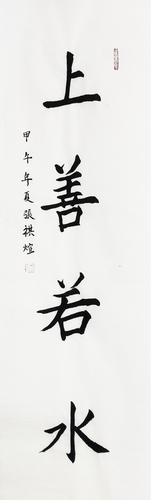 上善若水
甲午年夏張祺煊